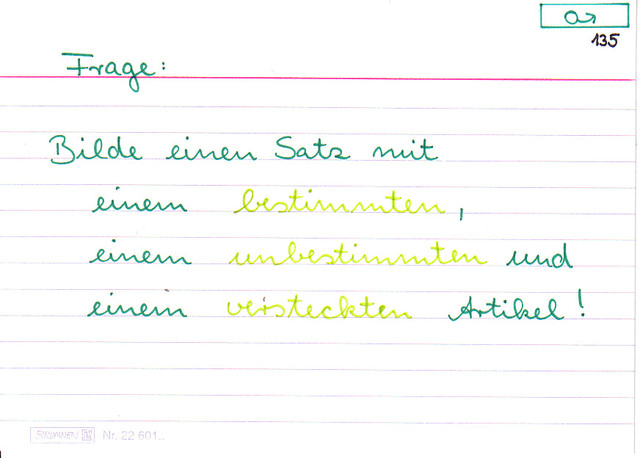 135
Frage:
Bilde einen Satz mit
einem bestimmten,
einem unbestimmten und
einem versteckten Artikel!
Nr. 22 601